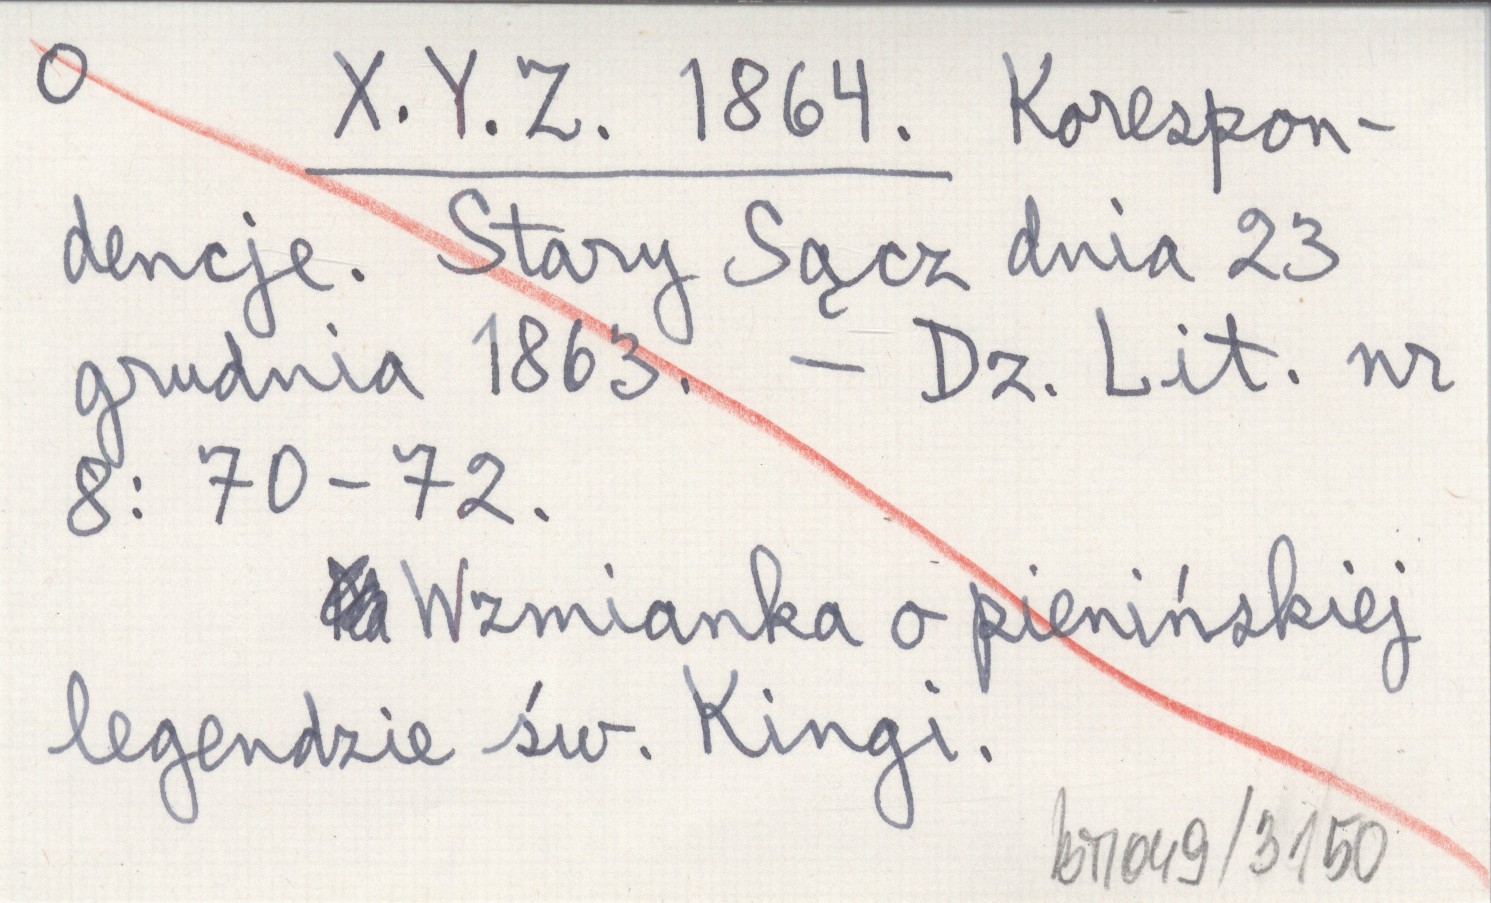 O X.Y.Z. 1864. Korespon-
dencje. Stary Sącz dnia 23
grudnia 1863. – Dz. Lit. nr
8: 70-72.
Wzmianka o pienińskiej
legendzie św. Kingi.
/3150